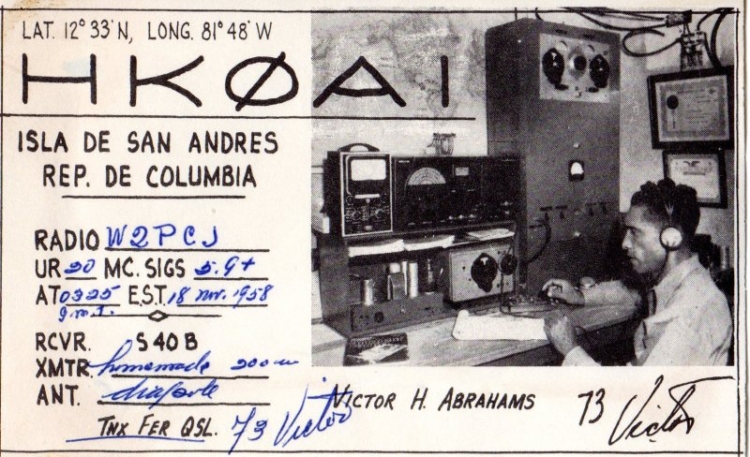 LAT. 12° 33' N, LONG. 81° 48' W
HKØAI
ISLA DE SAN ANDRES
REP. DE COLUMBIA
RADIO W2PCJ
UR 20 MC. SIGS 5.9+
AT 0325 E.S.T. 18 nov. 1958
g.m.t.
RCVR. S40B
XMTR. homemade 200w
ANT. dipole
TNX FER QSL. 73 Victor
VICTOR H. ABRAHAMS 73 Victor